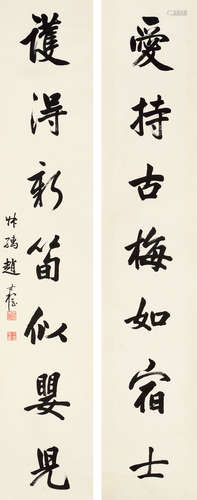 愛持古梅如宿士
護得新筍似嬰兒
趙